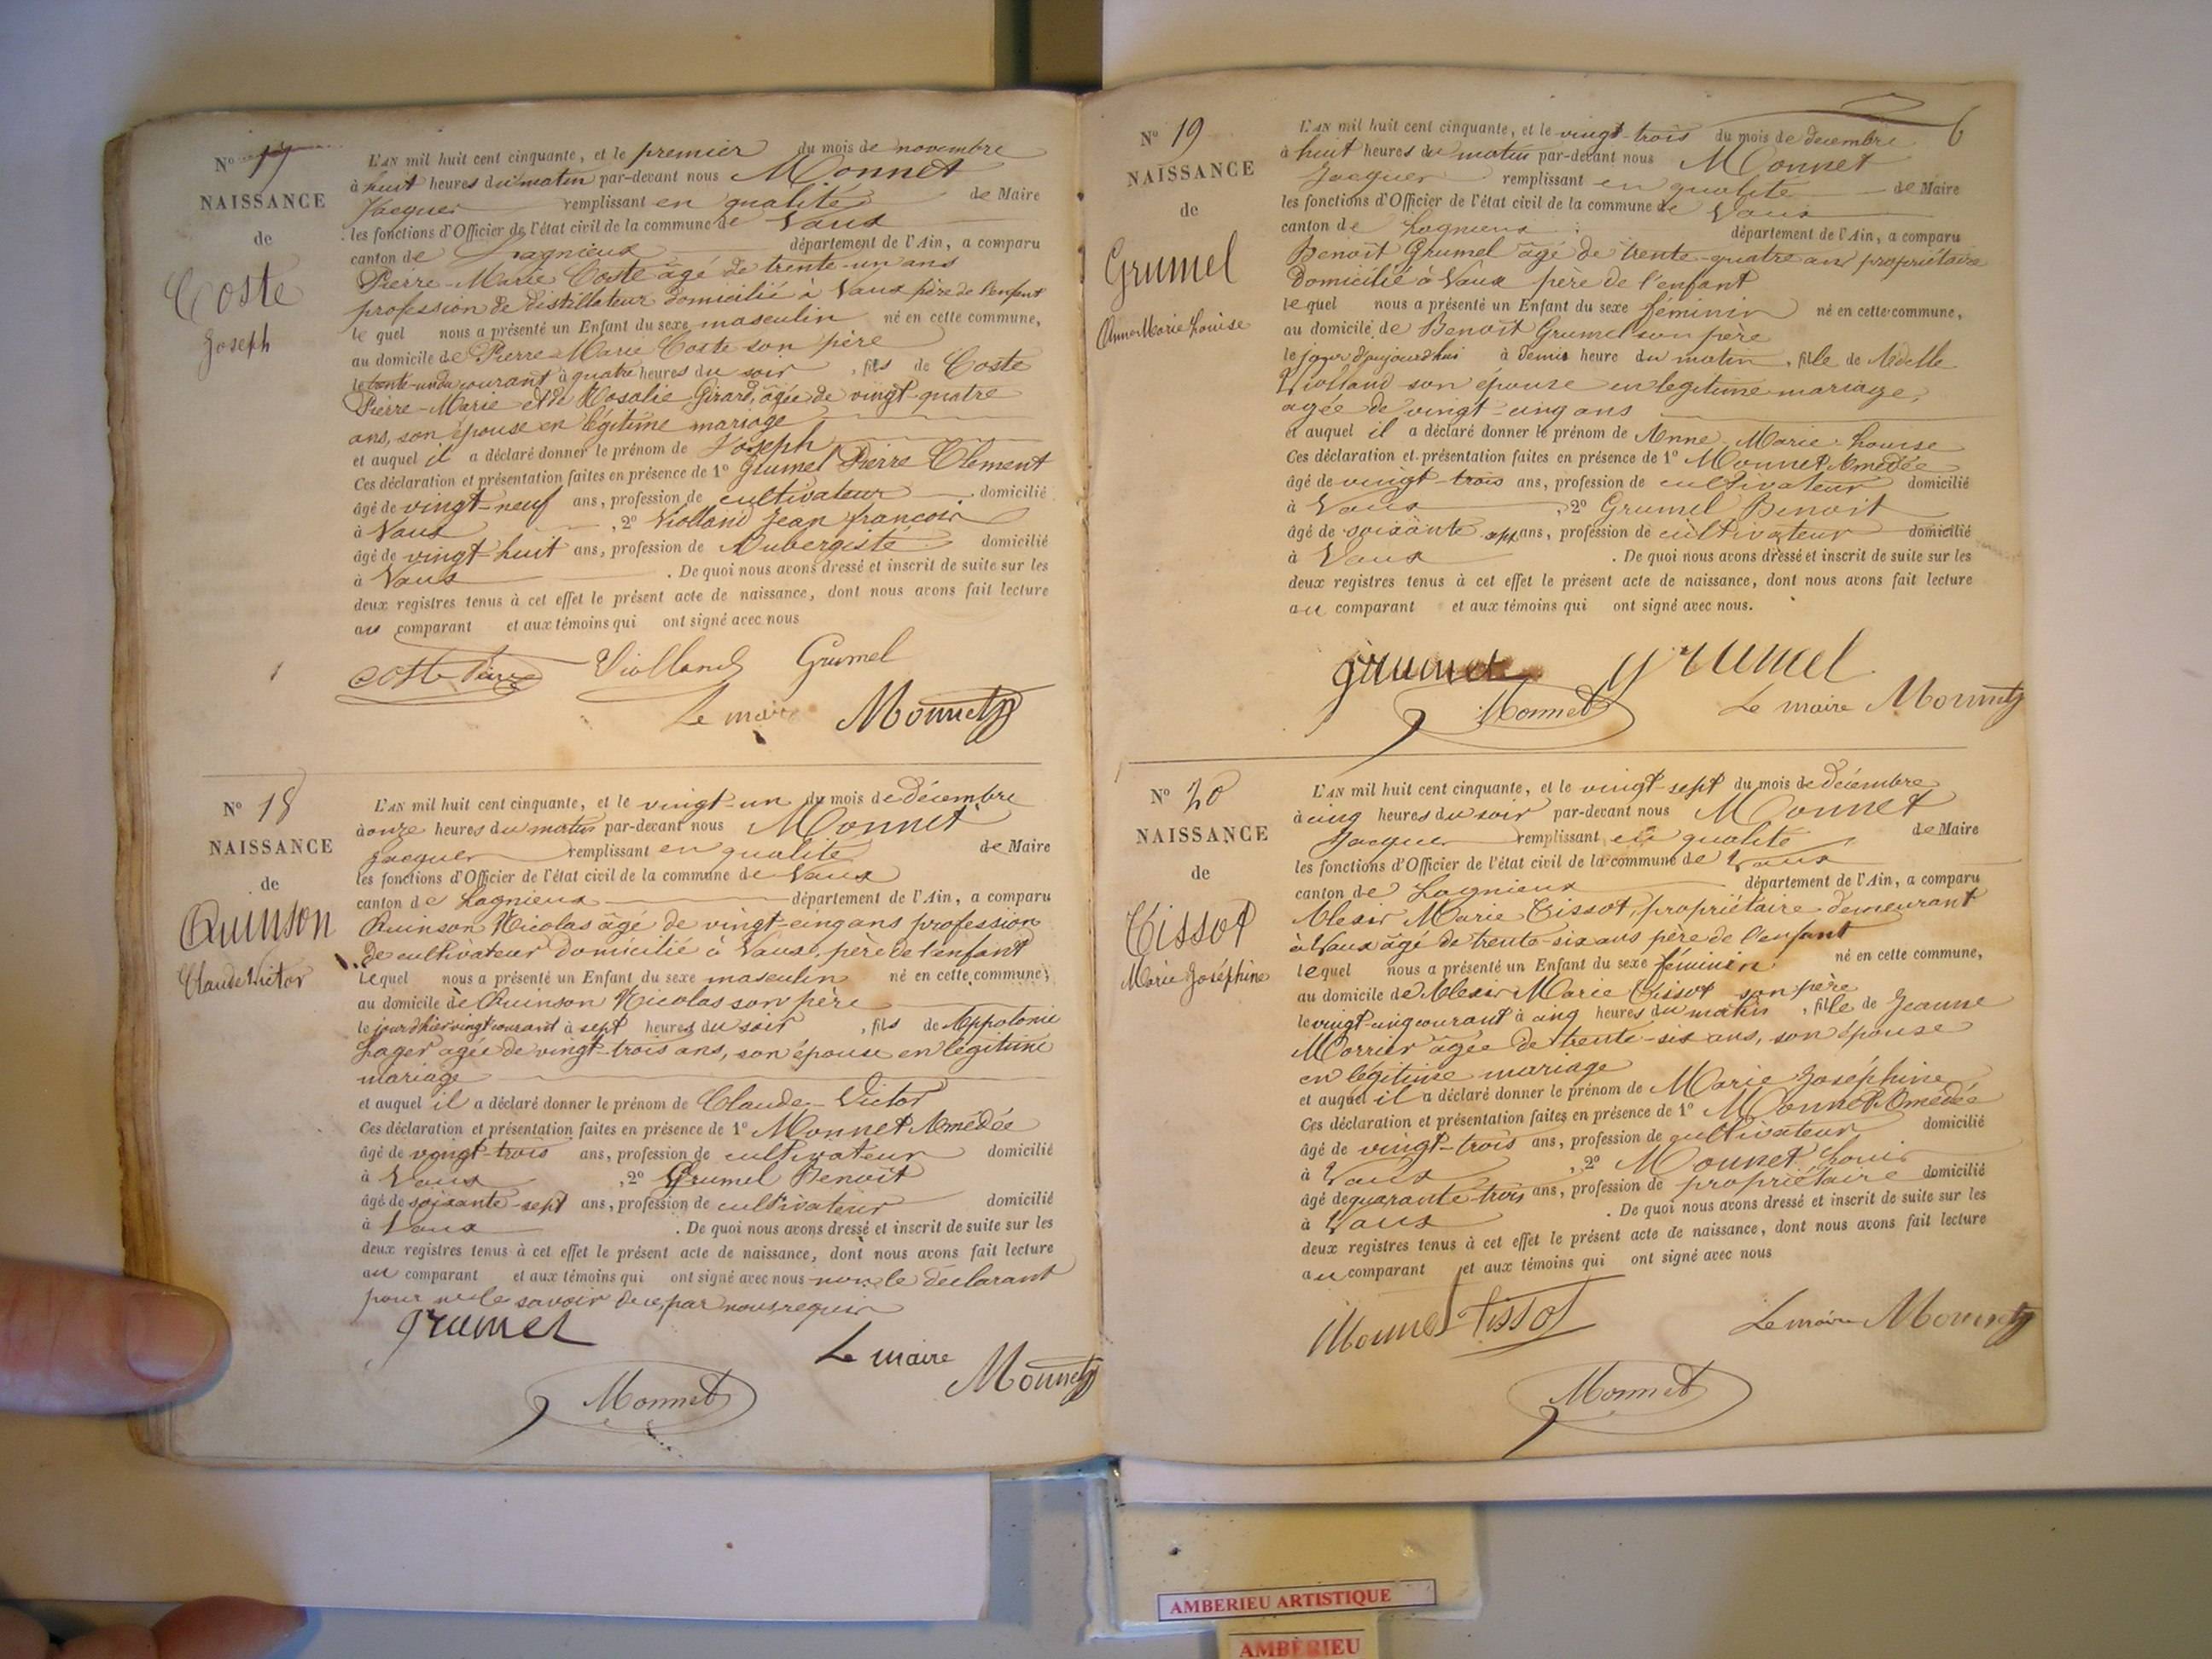 N° 17
NAISSANCE
de
Coste
Joseph
L'AN mil huit cent cinquante, et le premier du mois de novembre
à huit heures du matin par-devant nous Monnet
Jacques remplissant en qualité de Maire
les fonctions d'Officier de l'état civil de la commune de Vaux
canton de Lagnieux département de l'Ain, a comparu
Pierre-Marie Coste âgé de trente-un ans
profession de distillateur domicilié à Vaux père de l'enfant
le quel nous a présenté un Enfant du sexe masculin né en cette commune,
au domicile de Pierre-Marie Coste son père
le trente-un du courant à quatre heures du soir, fils de Coste
Pierre-Marie et de Rosalie Girard, âgée de vingt-quatre
ans, son épouse en légitime mariage
et auquel il a déclaré donner le prénom de Joseph
Ces déclaration et présentation faites en présence de 1° Grumel Pierre Clement
âgé de vingt-neuf ans, profession de cultivateur domicilié
à Vaux, 2° Violland Jean françois
âgé de vingt-huit ans, profession de Aubergiste domicilié
à Vaux. De quoi nous avons dressé et inscrit de suite sur les
deux registres tenus à cet effet le présent acte de naissance, dont nous avons fait lecture
au comparant et aux témoins qui ont signé avec nous
Coste Pierre Violland Grumel
Le maire Monnet
N° 18
NAISSANCE
de
Quinson
Claude Victor
L'AN mil huit cent cinquante, et le vingt-un du mois de décembre
à onze heures du matin par-devant nous Monnet
Jacques remplissant en qualité de Maire
les fonctions d'Officier de l'état civil de la commune de Vaux
canton de Lagnieux département de l'Ain, a comparu
Quinson Nicolas âgé de vingt-cinq ans profession
de cultivateur domicilié à Vaux, père de l'enfant
Lequel nous a présenté un Enfant du sexe masculin né en cette commune,
au domicile de Quinson Nicolas son père
le jour d'hier vingt courant à sept heures du soir, fils de Appolonie
Lager agée de vingt-trois ans, son épouse en légitime
mariage
et auquel il a déclaré donner le prénom de Claude-Victor
Ces déclaration et présentation faites en présence de 1° Monnet Amédée
âgé de vingt-trois ans, profession de cultivateur domicilié
à Vaux, 2° Grumel Benoit
âgé de soixante-sept ans, profession de cultivateur domicilié
à Vaux. De quoi nous avons dressé et inscrit de suite sur les
deux registres tenus à cet effet le présent acte de naissance, dont nous avons fait lecture
au comparant et aux témoins qui ont signé avec nous non le déclarant
pour ne le savoir de ce par nous requis
grumel
Le maire Monnet
Monnet
6
N° 19
NAISSANCE
de
Grumel
Anne Marie Louise
L'AN mil huit cent cinquante, et le vingt-trois du mois de decembre
à huit heures du matin par-devant nous Monnet
Jacques remplissant en qualité de Maire
les fonctions d'Officier de l'état civil de la commune de Vaux
canton de Lagnieux département de l'Ain, a comparu
Benoit Grumel âgé de trente-quatre ans propriétaire
domicilié à Vaux père de l'enfant
lequel nous a présenté un Enfant du sexe féminin né en cette commune,
au domicile de Benoit Grumel son père
le jour d'aujourd'hui à demie heure du matin, fille de Adelle
Violland son épouse en legitime mariage,
agée de vingt-cinq ans
et auquel il a déclaré donner le prénom de Anne-Marie-Louise
Ces déclaration et présentation faites en présence de 1° Monnet Amédée
âgé de vingt-trois ans, profession de cultivateur domicilié
à Vaux, 2° Grumel Benoit
âgé de soixante sept ans, profession de cultivateur domicilié
à Vaux. De quoi nous avons dressé et inscrit de suite sur les
deux registres tenus à cet effet le présent acte de naissance, dont nous avons fait lecture
au comparant et aux témoins qui ont signé avec nous.
grumel grumel
Monnet Le maire Monnet
N° 20
NAISSANCE
de
Tissot
Marie Joséphine
L'AN mil huit cent cinquante, et le vingt-sept du mois de décembre
à cinq heures du soir par-devant nous Monnet
Jacques remplissant en qualité de Maire
les fonctions d'Officier de l'état civil de la commune de Vaux
canton de Lagnieux département de l'Ain, a comparu
Alexis Marie Tissot, propriétaire demeurant
à Vaux âgé de trente-six ans père de l'enfant
lequel nous a présenté un Enfant du sexe féminin né en cette commune,
au domicile de Alexis Marie Tissot son père
le vingt-cinq courant à cinq heures du matin, fille de Jeanne
Morrier âgée de trente-six ans, son épouse
en légitime mariage
et auquel il a déclaré donner le prénom de Marie Joséphine
Ces déclaration et présentation faites en présence de 1° Monnet Amédée
âgé de vingt-trois ans, profession de cultivateur domicilié
à Vaux, 2° Monnet Louis
âgé de quarante-trois ans, profession de propriétaire domicilié
à Vaux. De quoi nous avons dressé et inscrit de suite sur les
deux registres tenus à cet effet le présent acte de naissance, dont nous avons fait lecture
au comparant et aux témoins qui ont signé avec nous
Monnet Tissot Le maire Monnet
Monnet
AMBERIEU ARTISTIQUE
AMBÉRIEU